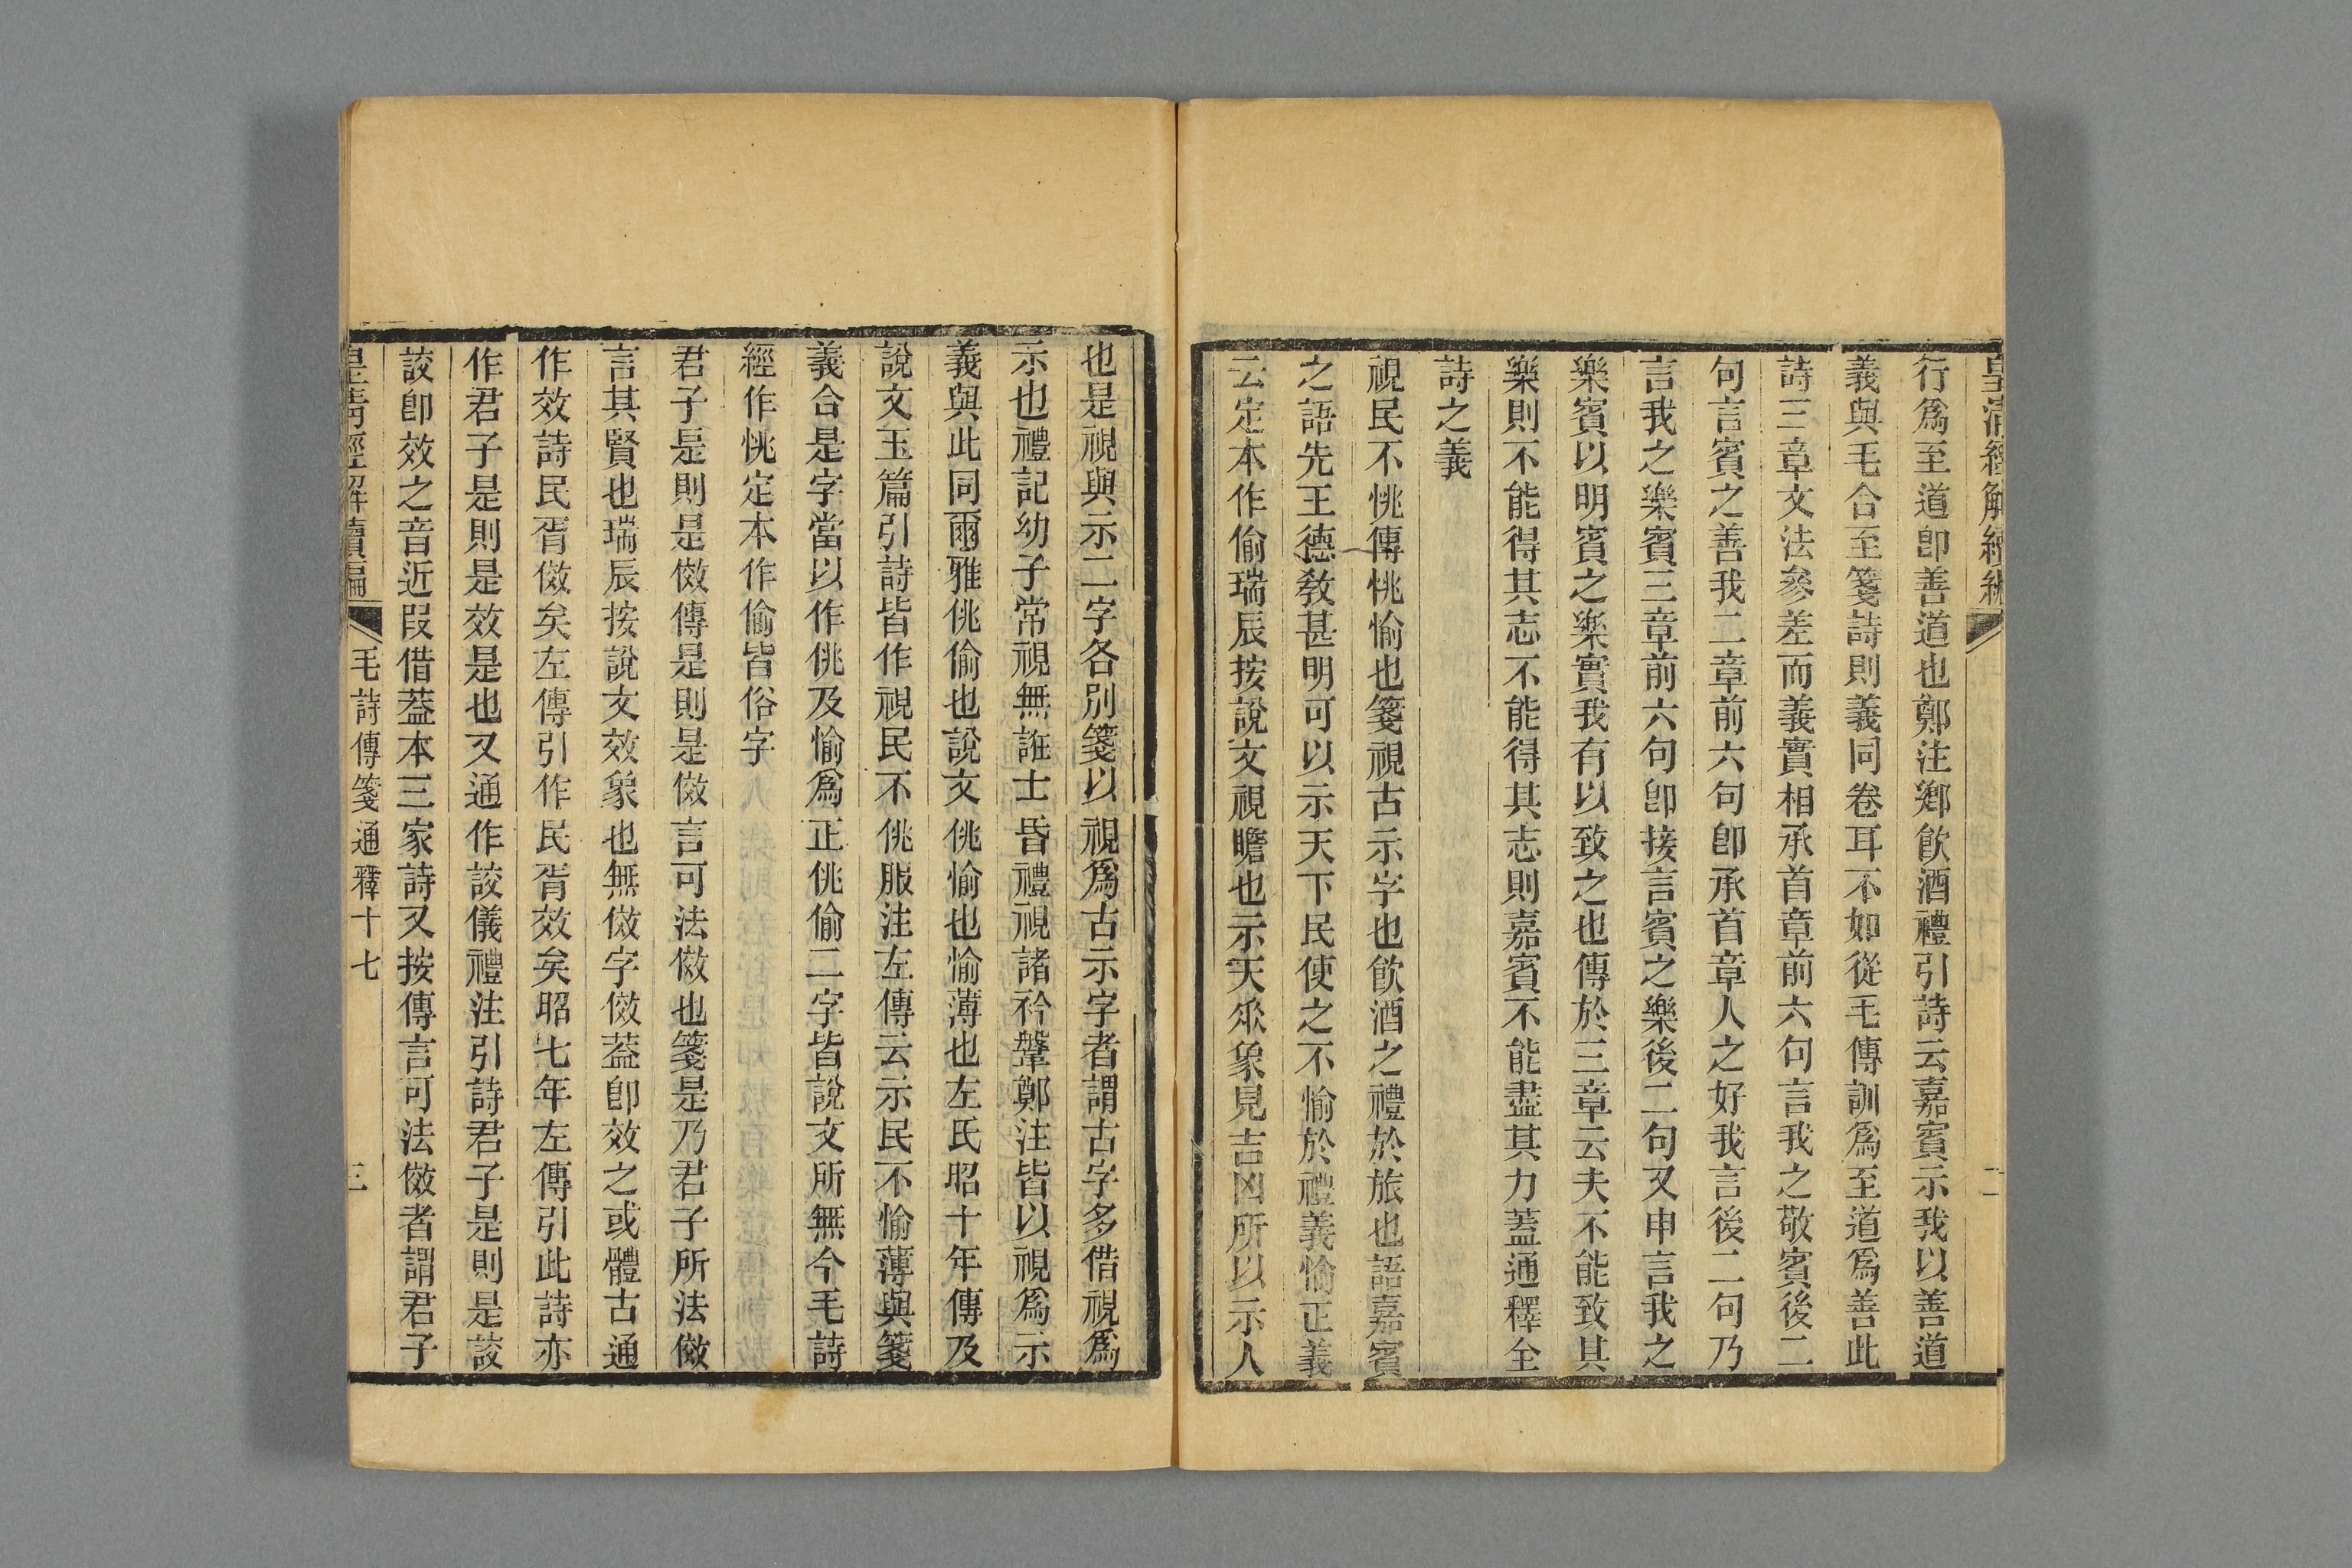 皇清經解續編
二
行爲至道卽善道也鄭注鄉飲酒禮引詩云嘉賓示我以善道
義與毛合至箋詩則義同卷耳不如從毛傳訓爲至道爲善此
詩三章文法參差而義實相承首章前六句言我之敬賓後二
句言賓之善我二章前六句卽承首章人之好我言後二句乃
言我之樂賓三章前六句卽接言賓之樂後二句又申言我之
樂賓以明賓之樂實我有以致之也傳於三章云夫不能致其
樂則不能得其志不能得其志則嘉賓不能盡其力蓋通釋全
詩之義
視民不恌傳恌愉也箋視古示字也飲酒之禮於旅也語嘉賓
之語先王德敎甚明可以示天下民使之不愉於禮義愉正義
云定本作偷瑞辰按說文視瞻也示天𠂹象見吉凶所以示人
也是視與示二字各別箋以視爲古示字者謂古字多借視爲
示也禮記幼子常視無誑士昏禮視諸衿鞶鄭注皆以視爲示
義與此同爾雅佻偷也說文佻愉也愉薄也左氏昭十年傳及
說文玉篇引詩皆作視民不佻服注左傳云示民不愉薄與箋
義合是字當以作佻及愉爲正佻偷二字皆說文所無今毛詩
經作恌定本作偷皆俗字
君子是則是傚傳是則是傚言可法傚也箋是乃君子所法傚
言其賢也瑞辰按說文效象也無傚字傚蓋卽效之或體古通
作效詩民胥傚矣左傳引作民胥效矣昭七年左傳引此詩亦
作君子是則是效是也又通作詨儀禮注引詩君子是則是詨
詨卽效之音近叚借蓋本三家詩又按傳言可法傚者謂君子
皇清經解續編
毛詩傳箋通釋十七
三